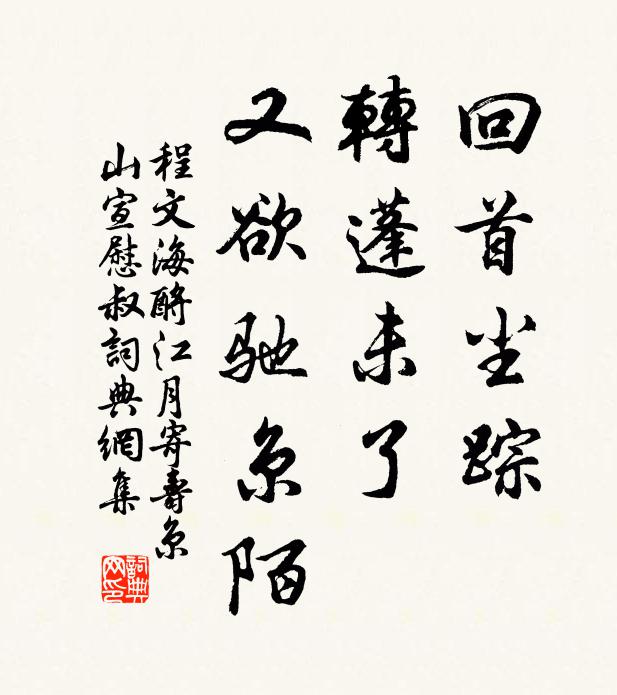 回首尘踪
轉蓬未了
又欲驰京陌
程文海酹江月寄壽京
山宣慰叔詞典網集
詞典
网印